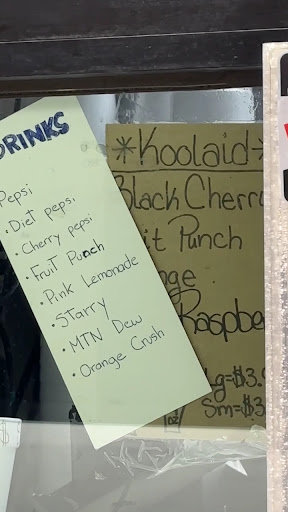 DRINKS
Pepsi
• Diet pepsi
• Cherry pepsi
• Fruit Punch
• Pink Lemonade
• Starry
• MTN Dew
• Orange Crush
*Koolaid*
Black Cherr
it Punch
nge
Raspbe
Lg=$3.
Sm=$3